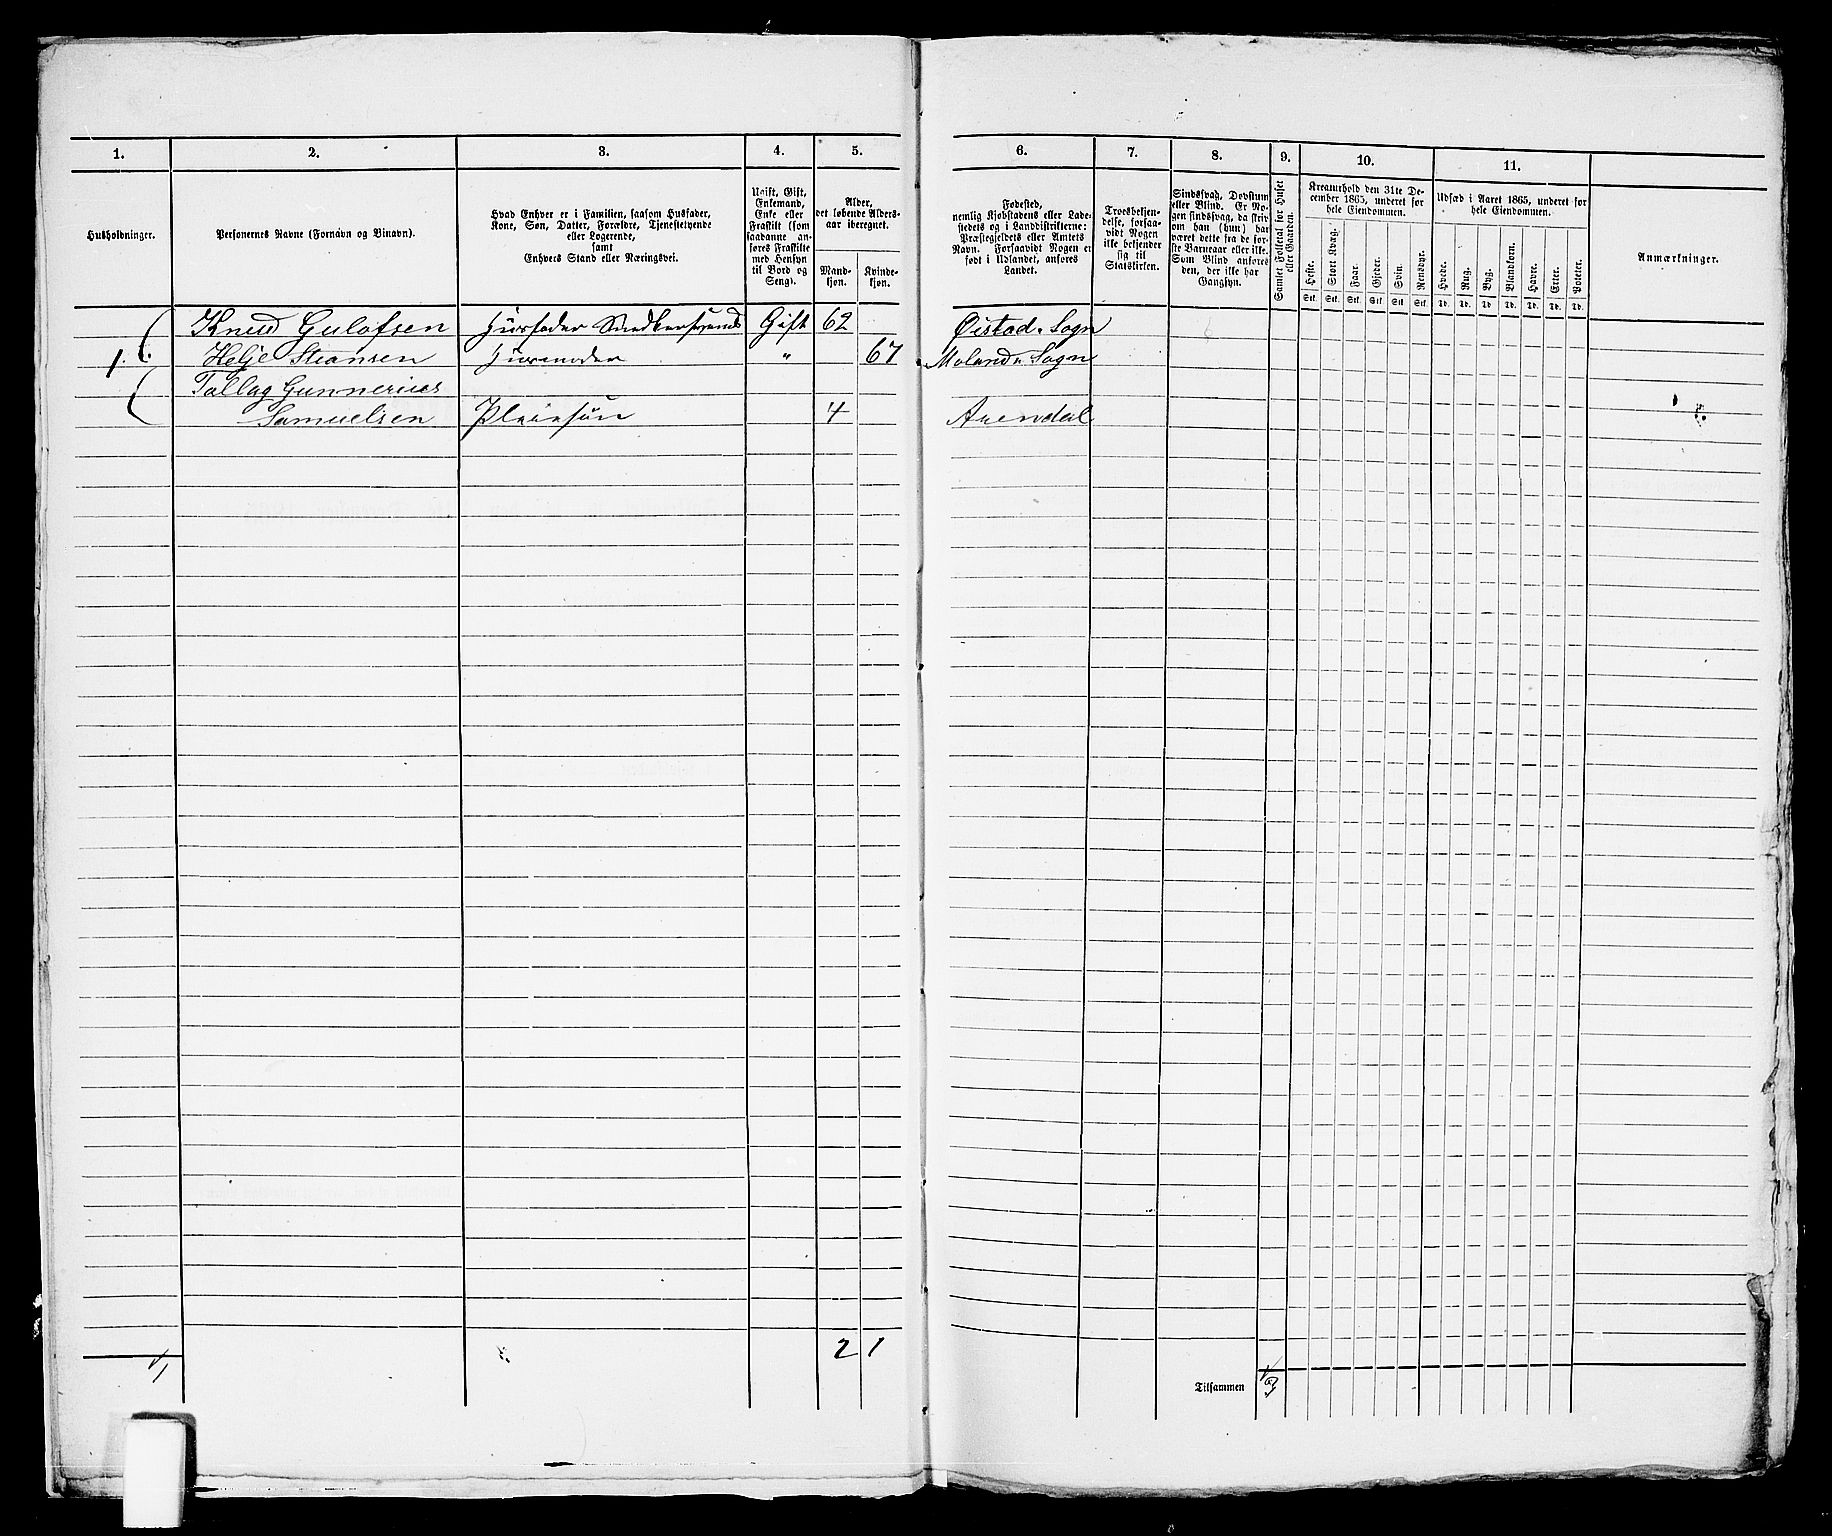 1. 2. 3. 4. 5. 6. 7. 8. 9. 10. 11.
Husholdninger.
Personernes Navne (Fornavn og Binavn).
Hvad Enhver er i Familien, saasom Husfader,
Kone, Søn, Datter, Forældre, Tjenestetyende
eller Logerende,
samt
Enhvers Stand eller Næringsvei.
Ugift, Gift,
Enkemand,
Enke eller
Fraskilt (som
saadanne an-
føres Fraskilte
med Hensyn
til Bord og
Seng).
Alder,
det løbende Alders-
aar iberegnet.
Mand-
kjøn.
Kvinde-
kjøn.
Fødested,
nemlig Kjøbstadens eller Lade-
stedets og i Landdistrikterne:
Præstegjeldets eller Amtets
Navn. Forsaavidt Nogen er
født i Udlandet, anføres
Landet.
Troesbekjen-
delse, forsaa-
vidt Nogen
ikke bekjender
sig til
Statskirken.
Sindssvag, Døvstum
eller Blind. Er No-
gen sindssvag, da skriv
om han (hun) har
været dette fra de før-
ste Barneaar eller ikke.
Som Blind anføres
den, der ikke har
Gangsyn.
Samlet Folketal for Huset
eller Gaarden.
Kreaturhold den 31te De-
cember 1865, underet for
hele Eiendommen.
Heste. Stort Kvæg. Faar. Gjeder. Svin. Rensdyr.
Stk. Stk. Stk. Stk. Stk. Stk.
Udsæd i Aaret 1865, underet for
hele Eiendommen.
Hvede. Rug. Byg. Blandkorn. Havre. Erter. Poteter.
Td. Td. Td. Td. Td. Td. Td.
Anmærkninger.
Knud Gulofsen Husfader Gift 62 Øistad Sogn
1. Helje Steansen Husmoder " 67 Molands Sogn
Tallag Gunnerius
Samuelsen Pleiesøn 4 Arendal
1 2 1
Tilsammen 3